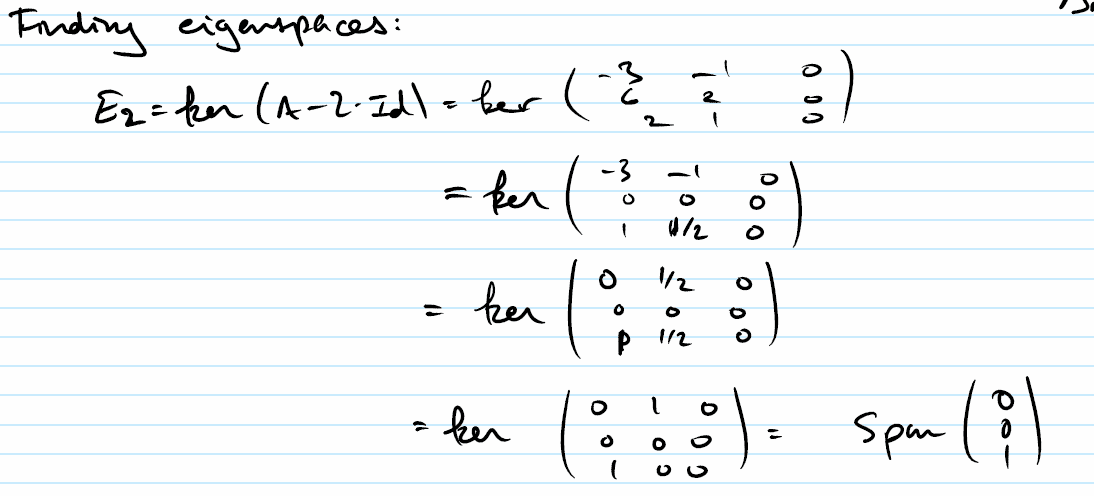 Finding eigenspaces:
E₂ = ker (A - 2·Id) = ker ( -3 -1 0
6 2 0
2 1 0 )
= ker ( -3 -1 0
0 0 0
1 1/2 0 )
= ker ( 0 1/2 0
0 0 0
1 1/2 0 )
= ker ( 0 1 0
0 0 0
1 0 0 ) = Span ( 0
0
1 )